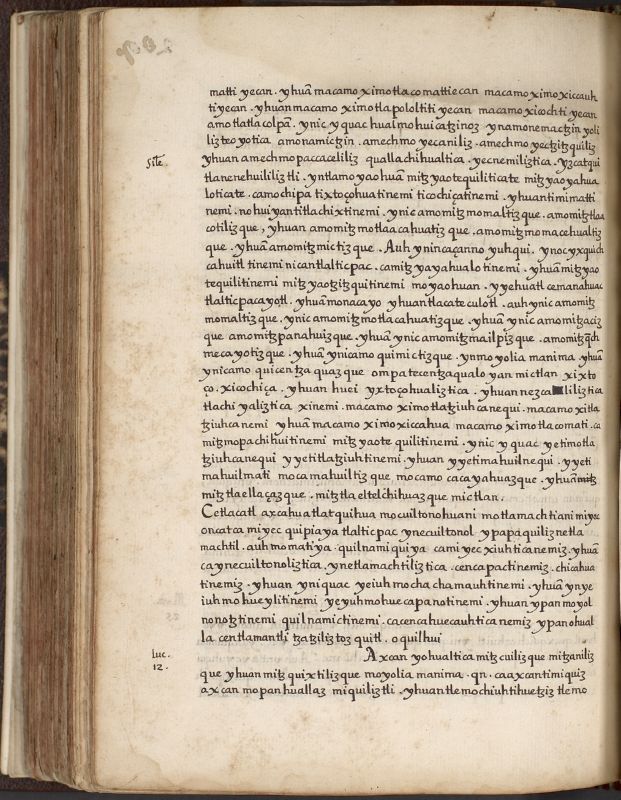 matti yecan. yhuā macamo ximotlacomattiecan macamo ximoxiccauh
tiyecan. yhuan macamo ximotlapololtiti yecan macamo xicochti yecan
amotlatlacolpā. ynic yquac hualmohuicatȥinoȥ ynamonematȥin yoli
liȥteoyotica amonamictȥin. amechmoyecaniliȥ. amechmoyectȥitȥquiliȥ
Sile. yhuan amechmopaccaceliliȥ quallachihualtica. yecnemiliȥtica. yȥcatqui
tlanenehuililiȥtli. yntlamoyaohuā mitȥ yaotequiliticate mitȥ yaoyahua
loticate. camochipa tixtoçohuatinemi ticochiçatinemi. yhuan timimatti
nemi. nohuiyan titlachixtinemi. ynic amo mitȥmomaltiȥque. amo mitȥtlaa
cotiliȥque, yhuan amo mitȥmotlaacahuatiȥ que. amo mitȥmomacehualtiȥ
que. yhuā amo mitȥ mictiȥ que. Auh yn inçaçanno yuhqui. ynoc yxquich
cahuitl tinemi nican tlalticpac. ca mitȥ yayahualotinemi. yhuā mitȥ yao
tequilitinemi mitȥ yaotȥitȥquitinemi moyaohuan. yyehuatl cemanahuac
tlalticpacayotl. yhuā monacayo yhuan tlacateculotl. auh ynic amo mitȥ
momaltiȥ que. ynic amo mitȥmotlacahuatiȥque. yhuā ynic amo mitȥ aciȥ
que amo mitȥ panahuiȥque. yhuā ynic amo mitȥmailpiȥ que. amo mitȥ q̄ch
mecayotiȥ que. yhuā ynic amo quimictiȥque. ynmoyolia manima. yhuā
ynic amo quicentȥaquaȥ que ompa tecentȥaqualoyan mictlan xixto
ço. xicochiça. yhuan huei yxtoçohualiȥtica. yhuan neȥcaliliȥtica
tlachiyaliȥtica xinemi. macamo ximotlatȥiuhcanequi. macamo xitla
tȥiuhcanemi yhuā macamo ximoxiccahua macamo ximotlacomati. ca
mitȥmopachihuitinemi mitȥ yaotequilitinemi. ynic yquac yetimotla
tȥiuhcanequi yyetitlatȥiuhtinemi. yhuan yyetimahuilnequi. yyeti
mahuilmati moca mahuiltiȥ que mocamo cacayahuaȥque. yhuā mitȥ
mitȥtlaellaçaȥ que. mitȥtlaeltelchihuaȥ que mictlan.
Cetlacatl axcahua tlatquihua mocuiltonohuani motlamachtiani miyec
oncatca miyec quipiaya tlalticpac ynecuiltonol ypapaquiliȥ netla
machtil. auh momatiya. quilnamiquiya ca miyec xiuhtica nemiȥ. yhuā
ca ynecuiltonoliȥtica. ynetlamachtiliȥtica. cenca pactinemiȥ. chicahua
tinemiȥ. yhuan yn iquac yeiuh mochachamauhtinemi. yhuā yn ye
iuh mohueylitinemi yeyuh mohuecapanotinemi. yhuan ypan moyol
nonotȥtinemi quilnamictinemi. ca cenca huecauhtica nemiȥ ypan ohual
la centlamantli tȥatȥiliȥtoȥ quitl. oquilhui
Luc. 12. Axcan yohualtica mitȥ cuiliȥque mitȥaniliȥ
que yhuan mitȥ quixtiliȥque moyolia manima. qn. ca axcan timiquiȥ
axcan mopan huallaȥ miquiliȥtli. yhuan tle mochiuhtihuetȥiȥ tle mo